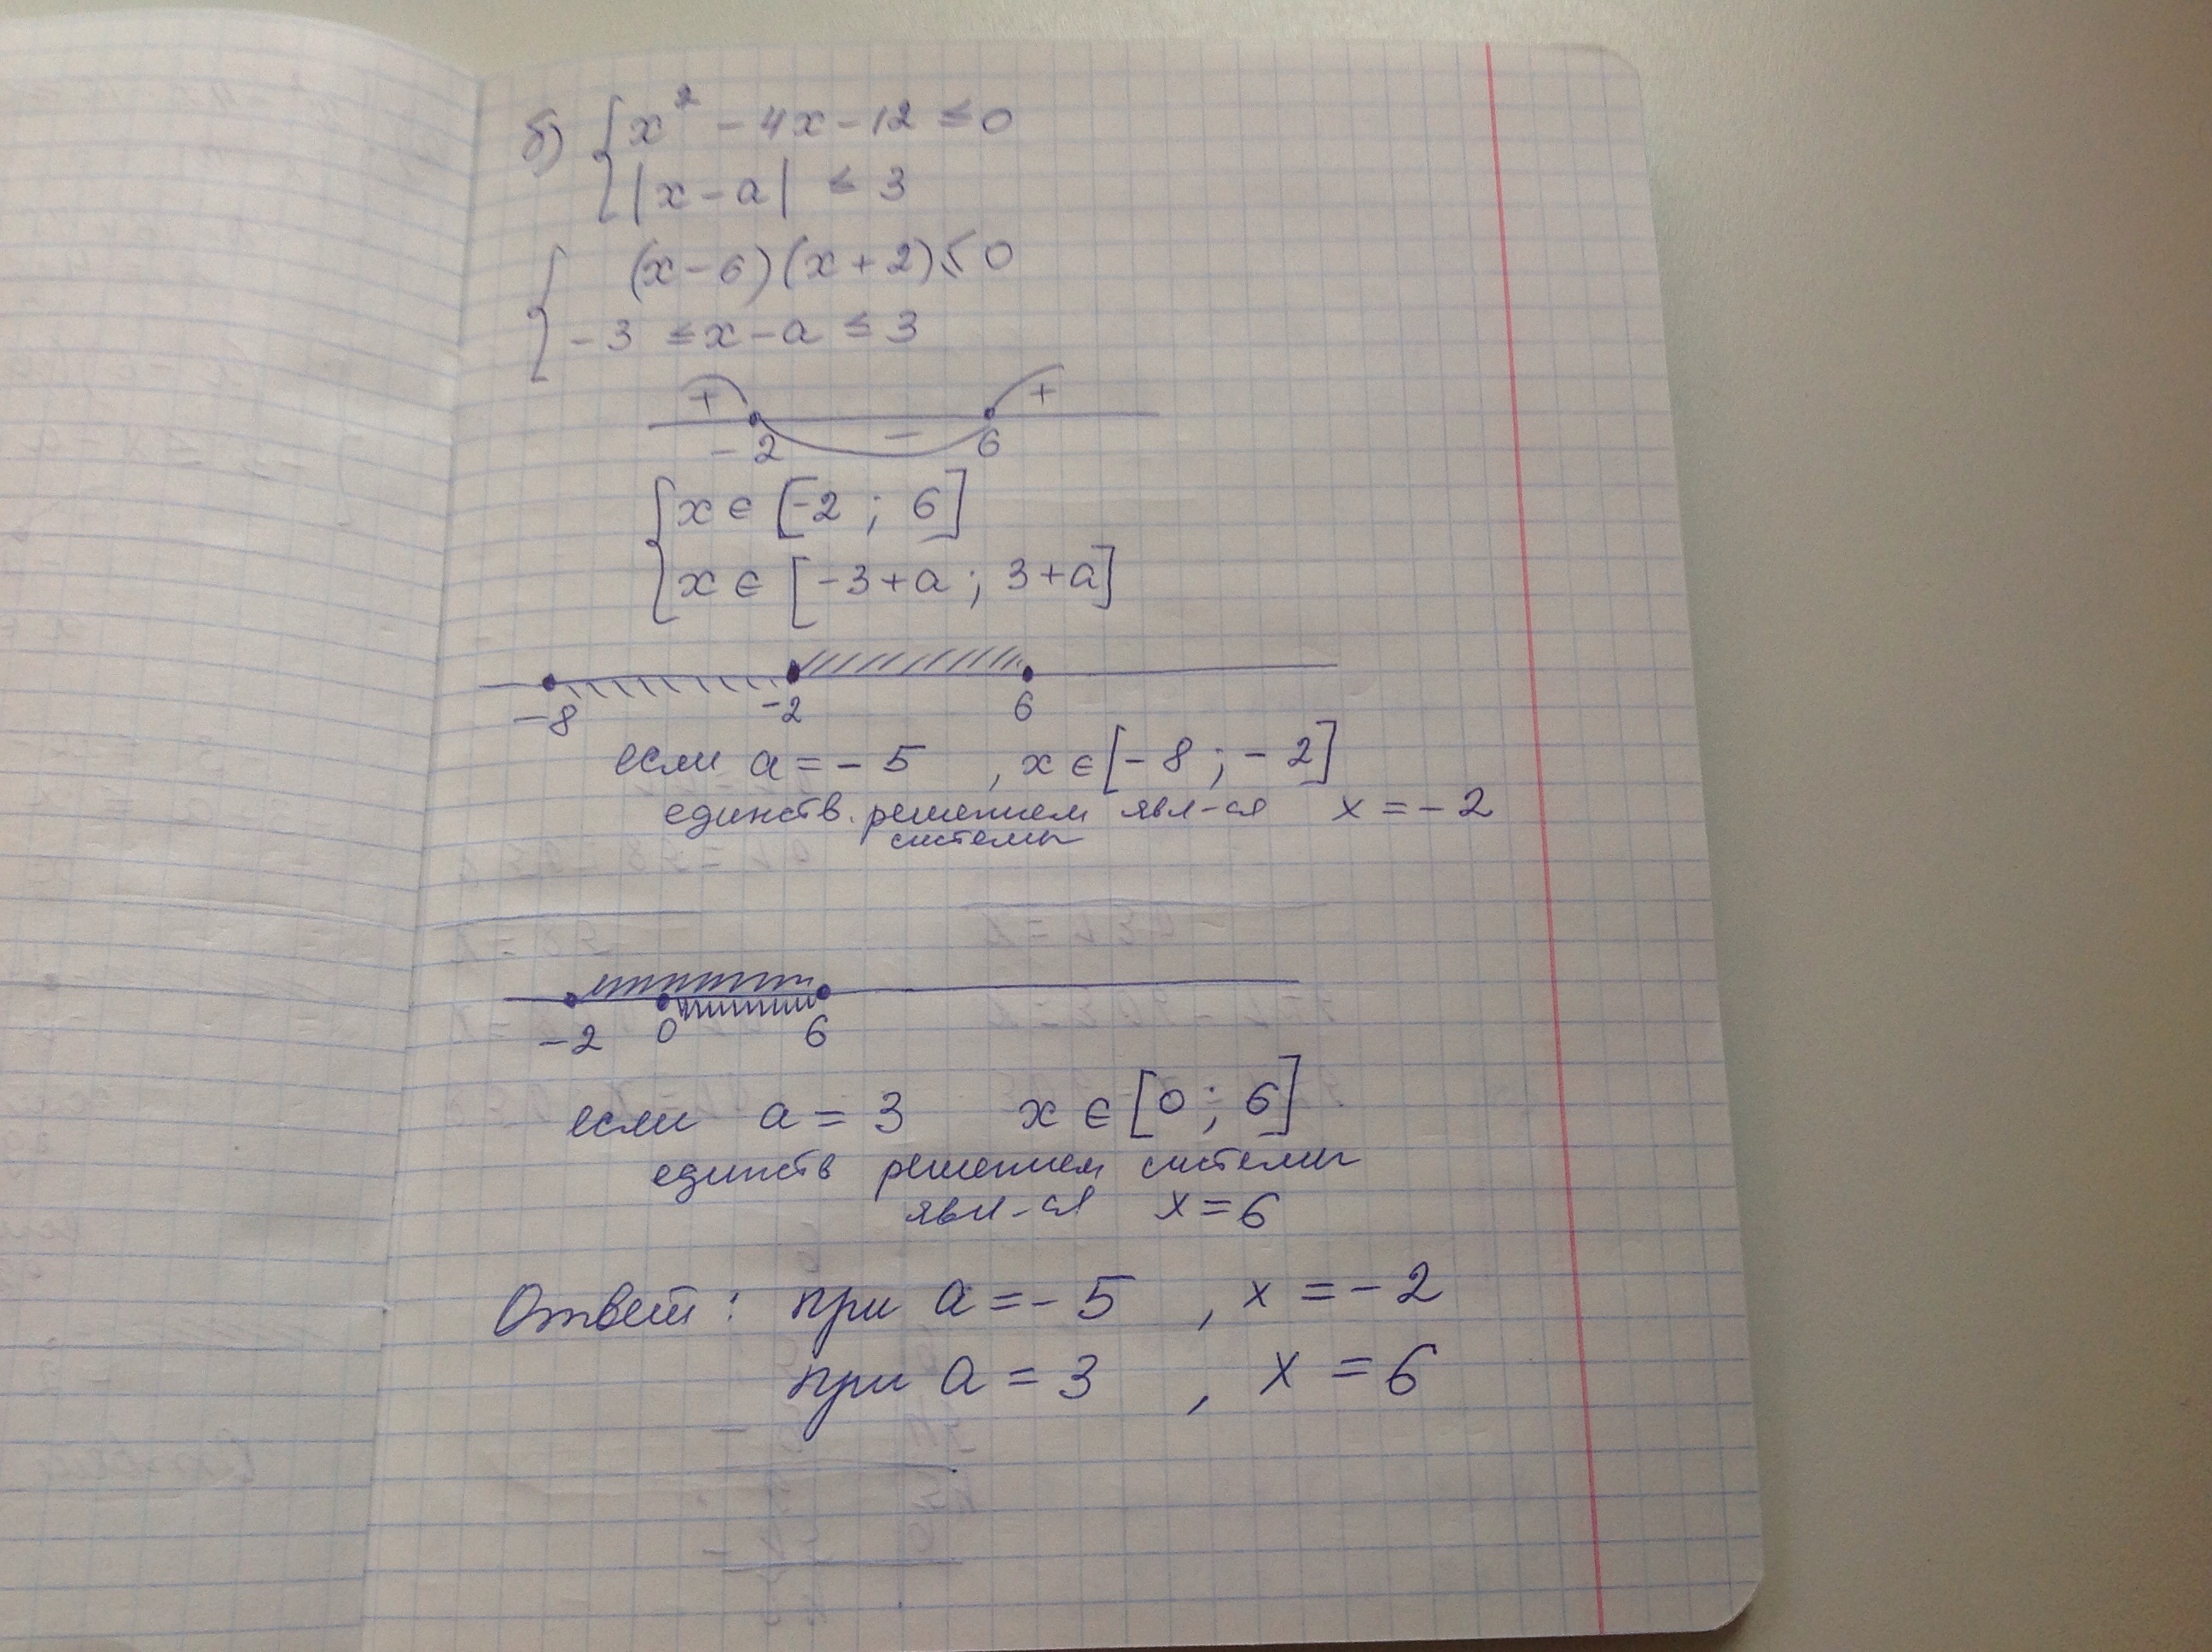 б) { x² - 4x - 12 ≤ 0
|x - a| ≤ 3
{ (x - 6)(x + 2) ≤ 0
-3 ≤ x - a ≤ 3
+ - +
-2 6
{ x ∈ [-2 ; 6]
x ∈ [-3+a ; 3+a]
-8 -2 6
если a = -5 , x ∈ [-8 ; -2]
единств. решением явл-ся x = -2
системы
-2 0 6
если a = 3 x ∈ [0 ; 6]
единств решением системы
явл-ся x = 6
Ответ: при a = -5 , x = -2
при a = 3 , x = 6